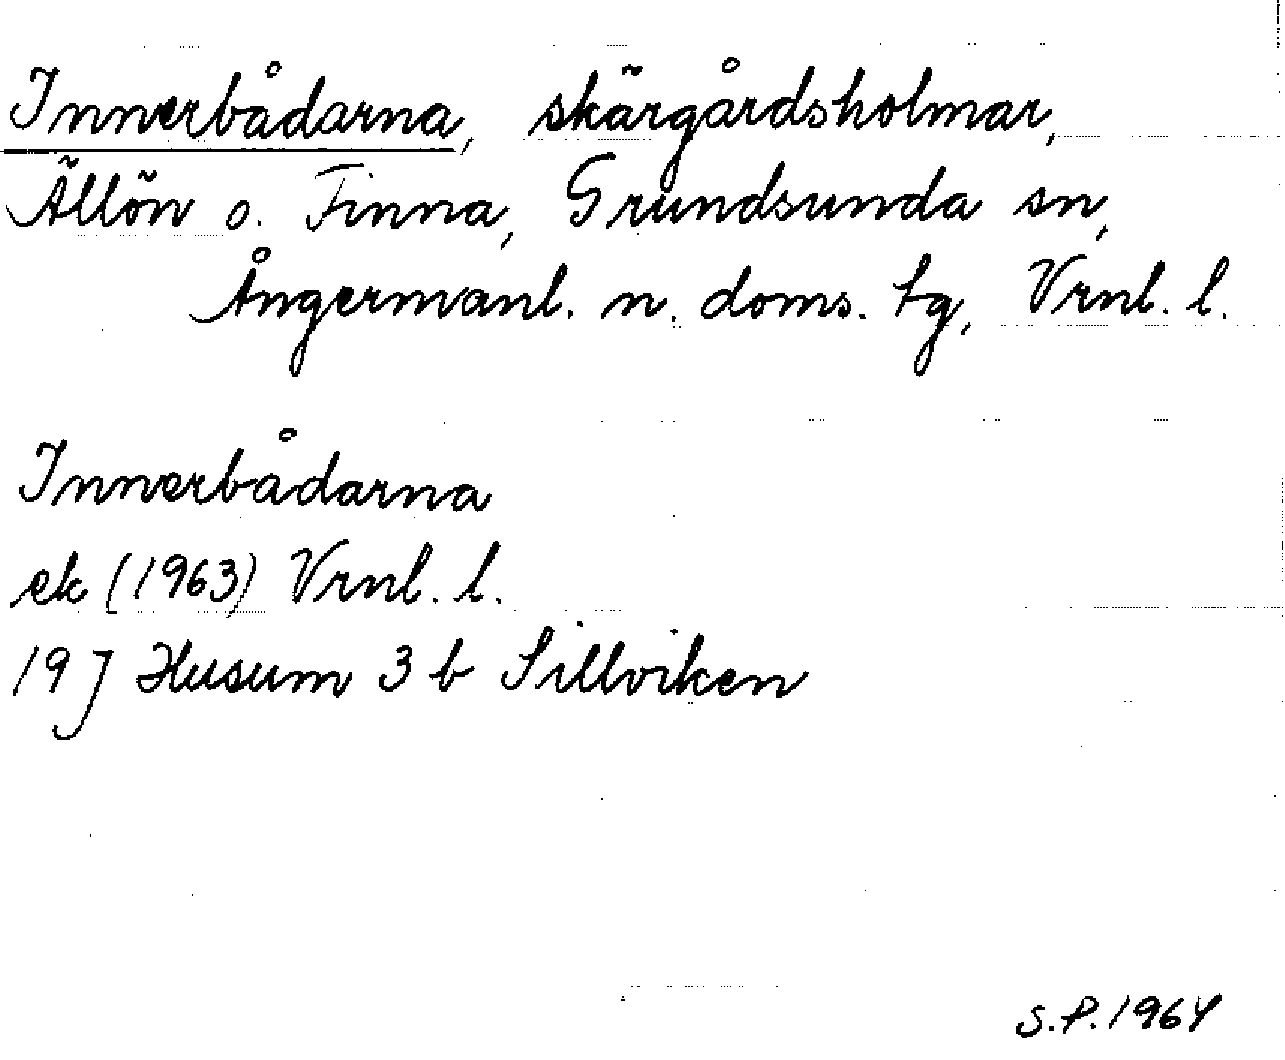 Innerbådarna, skärgårdsholmar,
Ällön o. Finna, Grundsunda sn,
Ångermanl. n. doms. tg, Vrnl. l.
Innerbådarna
ek (1963) Vrnl. l.
19 J Husum 3 b Sillviken
S.P. 1964